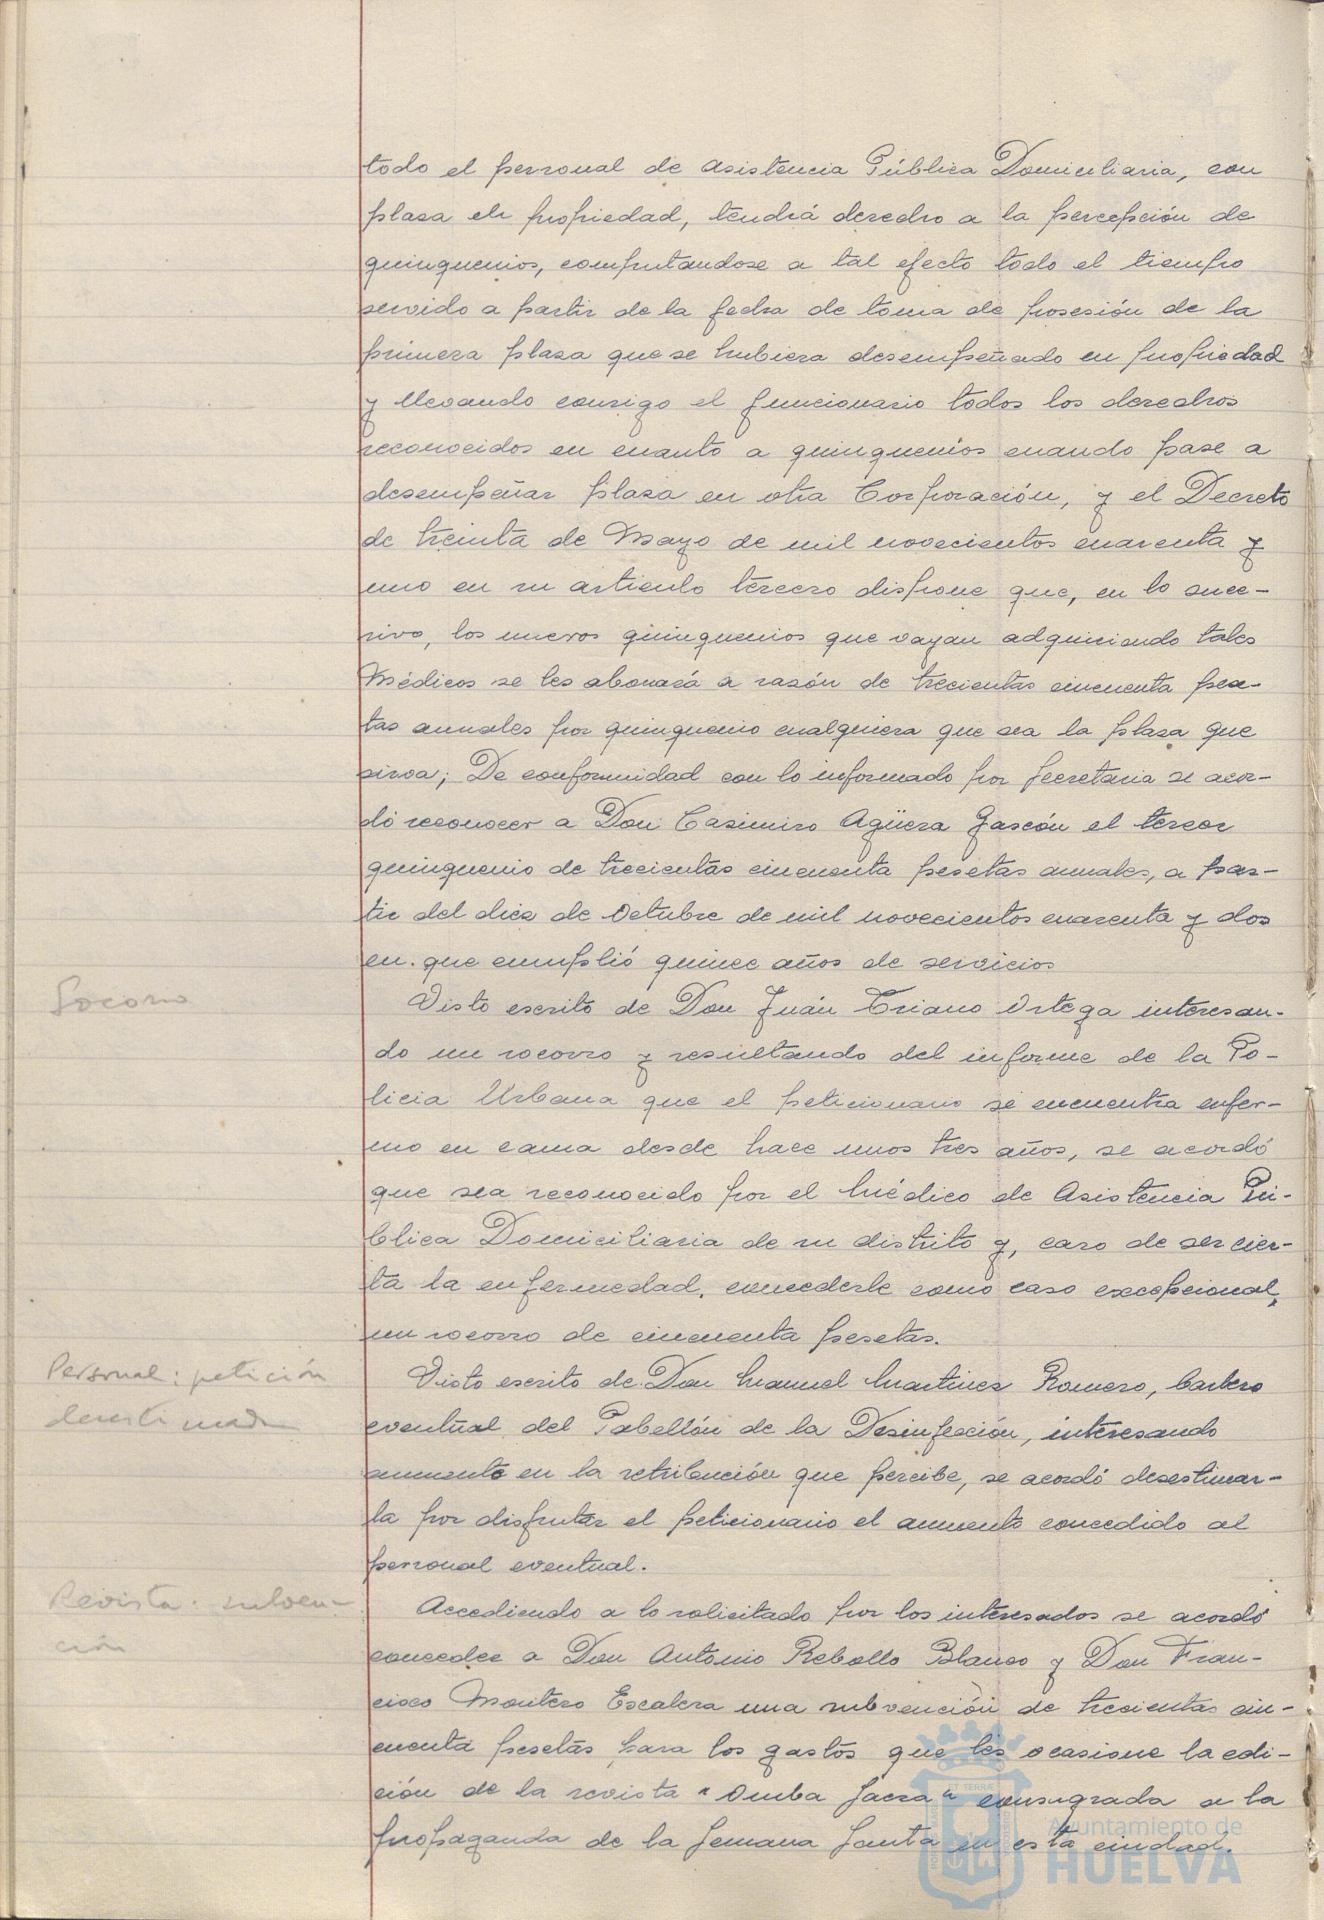 todo el personal de asistencia Pública Domiciliaria, con
plaza en propiedad, tendrá derecho a la percepción de
quinquenios, computandose a tal efecto todo el tiempo
servido a partir de la fecha de toma de posesión de la
primera plaza que se hubiera desempeñado en propiedad
y llevando consigo el funcionario todos los derechos
reconocidos en cuanto a quinquenios cuando pase a
desempeñar plaza en otra Corporación, y el Decreto
de treinta de Mayo de mil novecientos cuarenta y
uno en su articulo tercero dispone que, en lo suce-
sivo, los nuevos quinquenios que vayan adquiriendo tales
Médicos se les abonará a razón de trecientas cincuenta pese-
tas anuales por quinquenio cualquiera que sea la plaza que
sirva; De conformidad con lo informado por Secretaria se acor-
dó reconocer a Don Casimiro Agüera Gascón el tercer
quinquenio de trecientas cincuenta pesetas anuales, a par-
tir del diez de Octubre de mil novecientos cuarenta y dos
en que cumplió quince años de servicios
Socorro
Visto escrito de Don Juán Triano Ortega interesan-
do un socorro y resultando del informe de la Po-
licia Urbana que el peticionario se encuentra enfer-
mo en cama desde hace unos tres años, se acordó
que sea reconocido por el Médico de Asistencia Pú-
blica Domiciliaria de su distrito y, caso de ser cier-
ta la enfermedad, concederle como caso excepcional,
un socorro de cincuenta pesetas.
Personal: petición
desestimada
Visto escrito de Don Manuel Martinez Romero, Cartero
eventual del Pabellón de la Desinfección, interesando
aumento en la retribución que percibe, se acordó desestimar-
la por disfrutar el peticionario el aumento concedido al
personal eventual.
Revista: subven-
ción
Accediendo a lo solicitado por los interesados se acordó
conceder a Don Antonio Rebollo Blanco y Don Fran-
cisco Montero Escalera una subvención de trecientas cin-
cuenta pesetas para los gastos que les ocasione la edi-
ción de la revista "Onuba Sacra" consagrada a la
propaganda de la Semana Santa en esta ciudad.
Ayuntamiento de
HUELVA